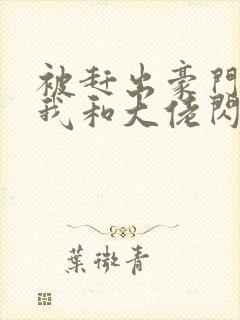 被赶出豪門
我和大佬閃
葉微青